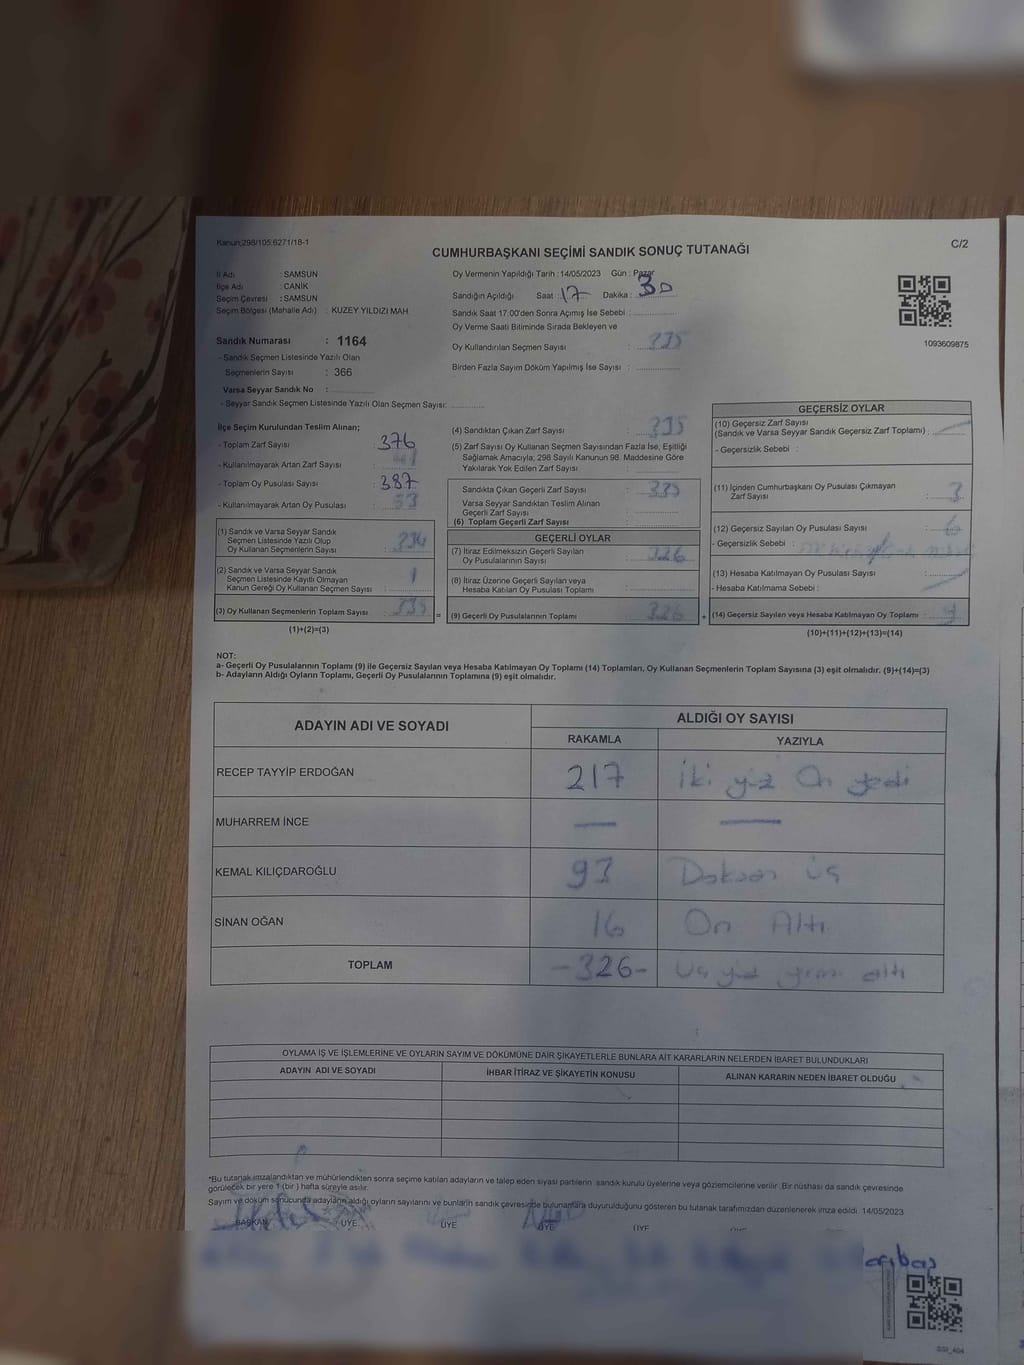 Kanun;298/105.6271/18-1
C/2
CUMHURBAŞKANI SEÇİMİ SANDIK SONUÇ TUTANAĞI
İl Adı : SAMSUN
İlçe Adı : CANİK
Seçim Çevresi : SAMSUN
Seçim Bölgesi (Mahalle Adı) : KUZEY YILDIZI MAH
Sandık Numarası : 1164
- Sandık Seçmen Listesinde Yazılı Olan
Seçmenlerin Sayısı : 366
Varsa Seyyar Sandık No :
- Seyyar Sandık Seçmen Listesinde Yazılı Olan Seçmen Sayısı:
Oy Vermenin Yapıldığı Tarih : 14/05/2023 Gün : Pazar
Sandığın Açıldığı Saat : 17 Dakika : 30
Sandık Saat 17.00'den Sonra Açımış İse Sebebi :
Oy Verme Saati Bitiminde Sırada Bekleyen ve
Oy Kullandırılan Seçmen Sayısı :
Birden Fazla Sayım Döküm Yapılmış İse Sayısı :
1093609875
İlçe Seçim Kurulundan Teslim Alınan;
- Toplam Zarf Sayısı : 376
- Kullanılmayarak Artan Zarf Sayısı :
- Toplam Oy Pusulası Sayısı : 387
- Kullanılmayarak Artan Oy Pusulası : 53
(1) Sandık ve Varsa Seyyar Sandık
Seçmen Listesinde Yazılı Olup
Oy Kullanan Seçmenlerin Sayısı : 334
(2) Sandık ve Varsa Seyyar Sandık
Seçmen Listesinde Kayıtlı Olmayan
Kanun Gereği Oy Kullanan Seçmen Sayısı : 1
(3) Oy Kullanan Seçmenlerin Toplam Sayısı : 335 =
(1)+(2)=(3)
(4) Sandıktan Çıkan Zarf Sayısı : 335
(5) Zarf Sayısı Oy Kullanan Seçmen Sayısından Fazla İse, Eşitliği
Sağlamak Amacıyla; 298 Sayılı Kanunun 98. Maddesine Göre
Yakılarak Yok Edilen Zarf Sayısı :
Sandıkta Çıkan Geçerli Zarf Sayısı : 335
Varsa Seyyar Sandıktan Teslim Alınan
Geçerli Zarf Sayısı :
(6) Toplam Geçerli Zarf Sayısı :
GEÇERLİ OYLAR
(7) İtiraz Edilmeksizin Geçerli Sayılan
Oy Pusulalarının Sayısı : 326
(8) İtiraz Üzerine Geçerli Sayılan veya
Hesaba Katılan Oy Pusulası Toplamı :
(9) Geçerli Oy Pusulalarının Toplamı : 326 +
GEÇERSİZ OYLAR
(10) Geçersiz Zarf Sayısı
(Sandık ve Varsa Seyyar Sandık Geçersiz Zarf Toplamı) :
- Geçersizlik Sebebi :
(11) İçinden Cumhurbaşkanı Oy Pusulası Çıkmayan
Zarf Sayısı : 3
(12) Geçersiz Sayılan Oy Pusulası Sayısı : 6
- Geçersizlik Sebebi :
(13) Hesaba Katılmayan Oy Pusulası Sayısı :
- Hesaba Katılmama Sebebi :
(14) Geçersiz Sayılan veya Hesaba Katılmayan Oy Toplamı :
(10)+(11)+(12)+(13)=(14)
NOT:
a- Geçerli Oy Pusulalarının Toplamı (9) ile Geçersiz Sayılan veya Hesaba Katılmayan Oy Toplamı (14) Toplamları, Oy Kullanan Seçmenlerin Toplam Sayısına (3) eşit olmalıdır. (9)+(14)=(3)
b- Adayların Aldığı Oyların Toplamı, Geçerli Oy Pusulalarının Toplamına (9) eşit olmalıdır.
ADAYIN ADI VE SOYADI
ALDIĞI OY SAYISI
RAKAMLA YAZIYLA
RECEP TAYYİP ERDOĞAN 217 İki yüz On yedi
MUHARREM İNCE —
KEMAL KILIÇDAROĞLU 93 Doksan üç
SİNAN OĞAN 16 On Altı
TOPLAM -326- Üç yüz yirmi altı
OYLAMA İŞ VE İŞLEMLERİNE VE OYLARIN SAYIM VE DÖKÜMÜNE DAİR ŞİKAYETLERLE BUNLARA AİT KARARLARIN NELERDEN İBARET BULUNDUKLARI
ADAYIN ADI VE SOYADI İHBAR İTİRAZ VE ŞİKAYETİN KONUSU ALINAN KARARIN NEDEN İBARET OLDUĞU
*Bu tutanak imzalandıktan ve mühürlendikten sonra seçime katılan adayların ve talep eden siyasi partilerin sandık kurulu üyelerine veya gözlemcilerine verilir .Bir nüshası da sandık çevresinde
görülecek bir yere 1 (bir ) hafta süreyle asılır.
Sayım ve döküm sonucunda adayların aldığı oyların sayılarını ve bunların sandık çevresinde bulunanlara duyurulduğunu gösteren bu tutanak tarafımızdan düzenlenerek imza edildi. 14/05/2023
BAŞKAN ÜYE ÜYE ÜYE ÜYE